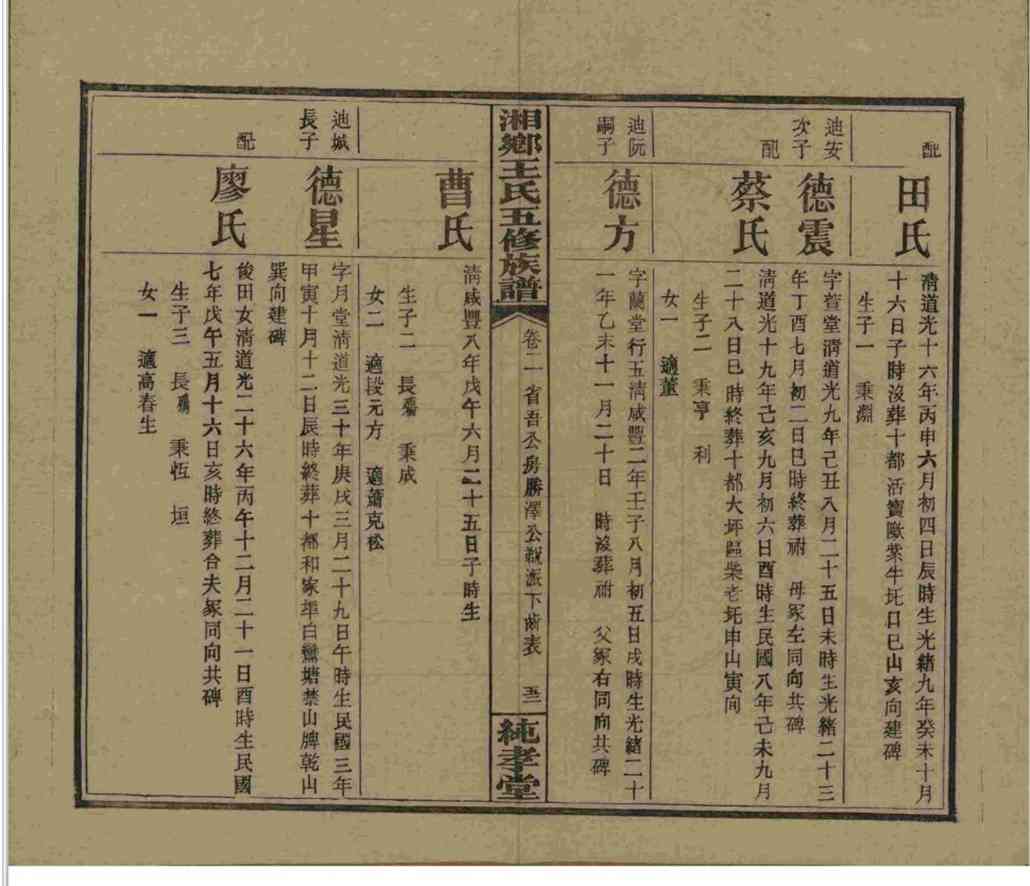 配
田氏
清道光十六年丙申六月初四日辰時生光緒九年癸未十月
十六日子時沒葬十都活寶歐紫牛圫口巳山亥向建碑
生子一 秉淵
迪安
次子
德震
字萱堂清道光九年己丑八月二十五日未時生光緒二十三
年丁酉七月初二日巳時終葬祔 母冢左同向共碑
配
蔡氏
清道光十九年己亥九月初六日酉時生民國八年己未九月
二十八日巳時終葬十都大坪區柴老圫申山寅向
生子二 秉亨 利
女一 適董
迪阮
嗣子
德方
字蘭堂行五清咸豐二年壬子八月初五日戌時生光緒二十
一年乙未十一月二十日 時沒葬祔 父冢右同向共碑
湘鄉王氏五修族譜
卷二 省吾公房勝澤公 派下齒表 五二
純孝堂
曹氏
清咸豐八年戊午六月二十五日子時生
生子二 長殤 秉成
女二 適段元方 適蕭克松
迪城
長子
德星
字月堂清道光三十年庚戌三月二十九日午時生民國三年
甲寅十月十二日辰時終葬十都和家埠白鷺塘禁山牌乾山
巽向建碑
配
廖氏
俊田女清道光二十六年丙午十二月二十一日酉時生民國
七年戊午五月十六日亥時終葬合夫冢同向共碑
生子三 長殤 秉恆 垣
女一 適高春生